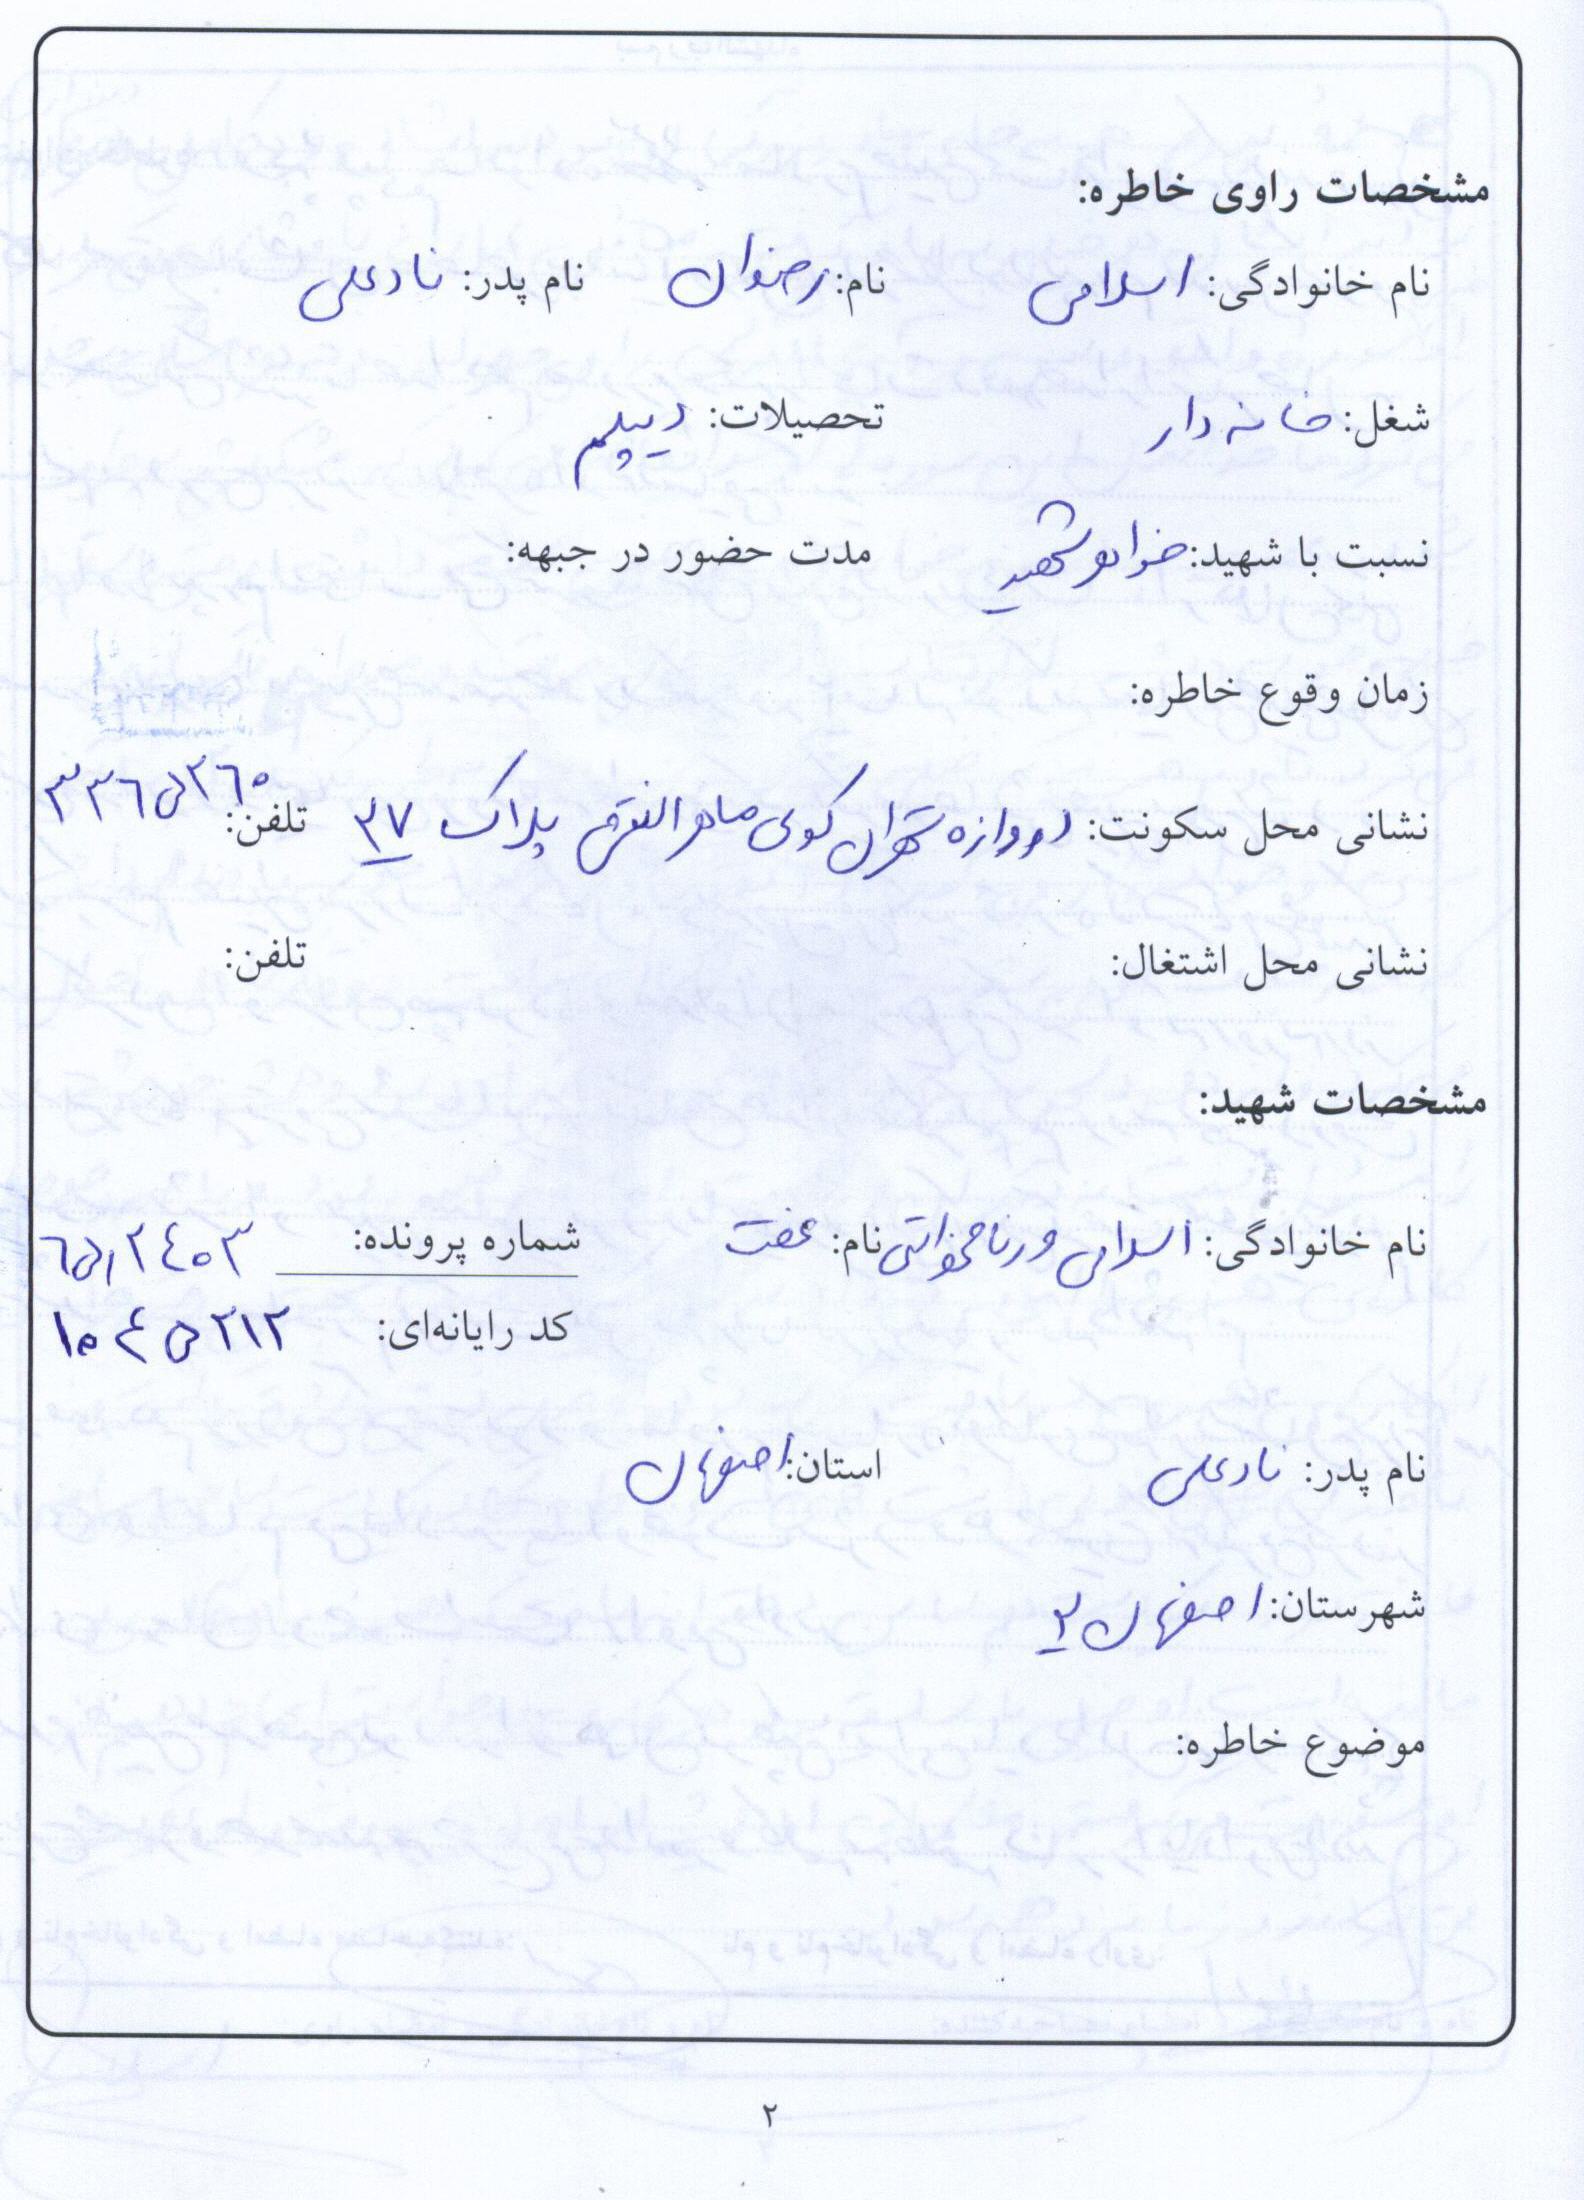 مشخصات راوی خاطره:
نام خانوادگی: اسلامی نام: رضوان نام پدر: نادعلی
شغل: خانه دار تحصیلات: دیپلم
نسبت با شهید: خواهر شهید مدت حضور در جبهه:
زمان وقوع خاطره:
نشانی محل سکونت: دروازه تهران کوی ماهر النقش پلاک ۳۷ تلفن: ۳۳۶۵۲۶۰
نشانی محل اشتغال: تلفن:
مشخصات شهید:
نام خانوادگی: اسلامی نام: عفت شماره پرونده:
کد رایانه‌ای: ۱۰۴۵۲۱۲
نام پدر: نادعلی استان: اصفهان
شهرستان: اصفهان ۲
موضوع خاطره:
۲